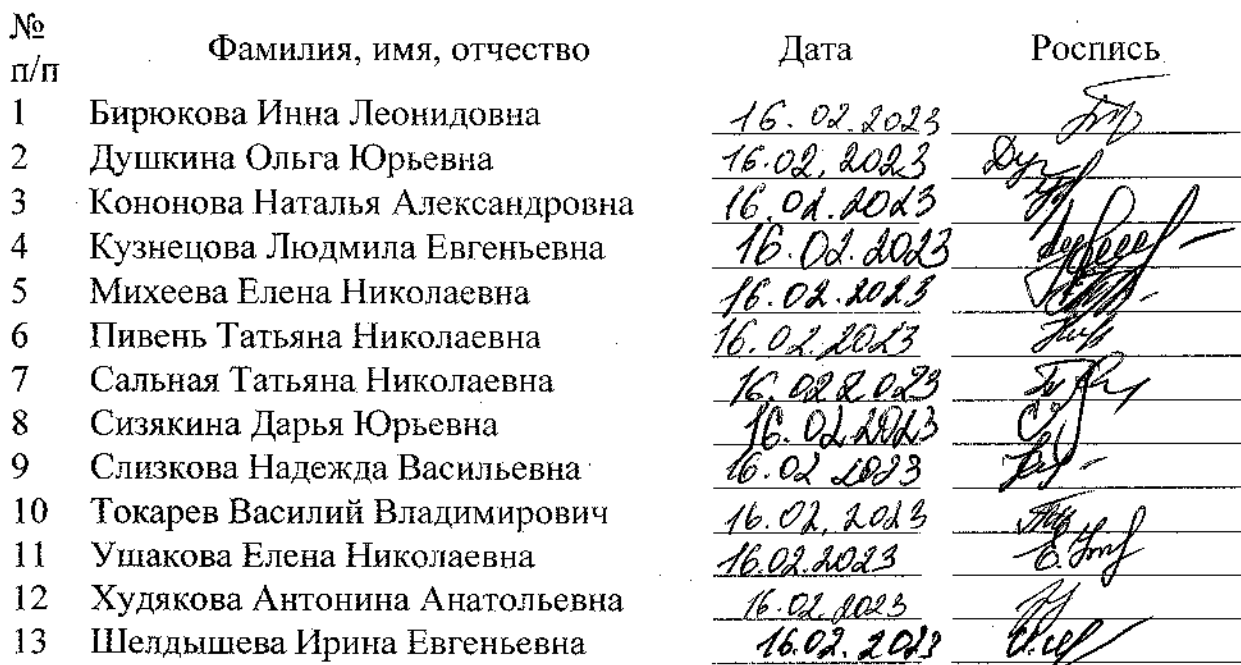 № п/п Фамилия, имя, отчество Дата Роспись
1 Бирюкова Инна Леонидовна 16.02.2023
2 Душкина Ольга Юрьевна 16.02.2023
3 Кононова Наталья Александровна 16.02.2023
4 Кузнецова Людмила Евгеньевна 16.02.2023
5 Михеева Елена Николаевна 16.02.2023
6 Пивень Татьяна Николаевна 16.02.2023
7 Сальная Татьяна Николаевна 16.02 2023
8 Сизякина Дарья Юрьевна 16.02.2023
9 Слизкова Надежда Васильевна 16.02 2023
10 Токарев Василий Владимирович 16.02.2023
11 Ушакова Елена Николаевна 16.02.2023
12 Худякова Антонина Анатольевна 16.02.2023
13 Шелдышева Ирина Евгеньевна 16.02.2023